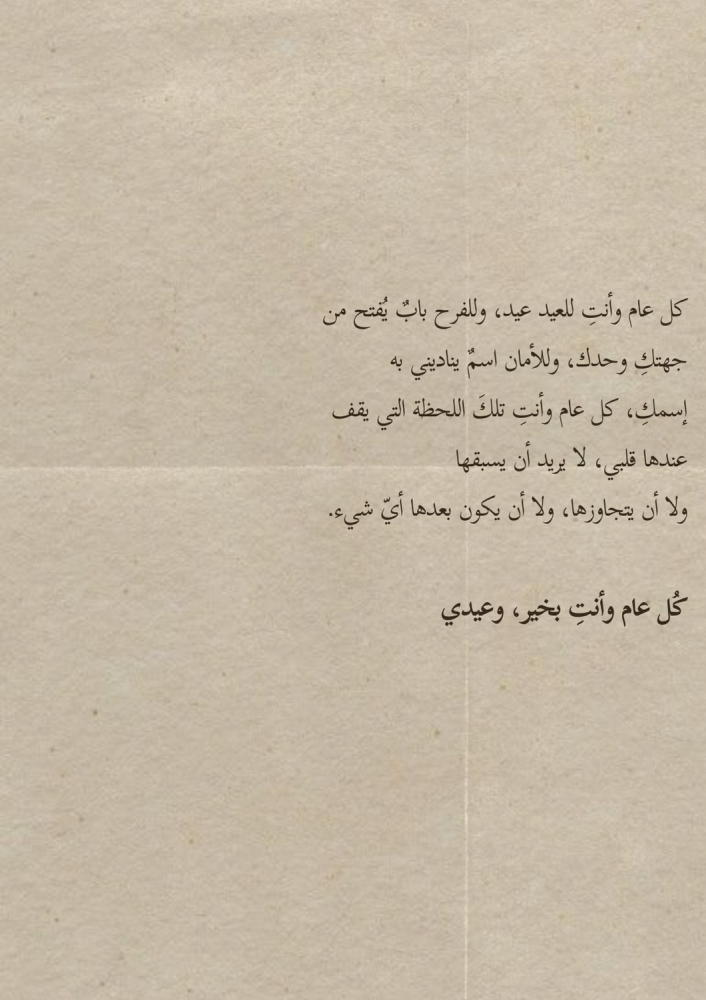 كل عام وأنتِ للعيد عيد، وللفرح بابٌ يُفتح من
جهتكِ وحدك، وللأمان اسمٌ يناديني به
إسمكِ، كل عام وأنتِ تلكَ اللحظة التي يقف
عندها قلبي، لا يريد أن يسبقها
ولا أن يتجاوزها، ولا أن يكون بعدها أيّ شيء.
كُل عام وأنتِ بخير، وعيدي